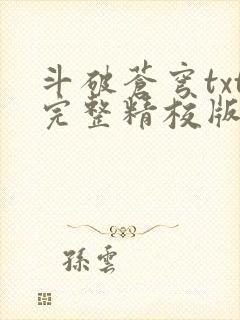 斗破蒼穹txt
完整精校版
孫雲